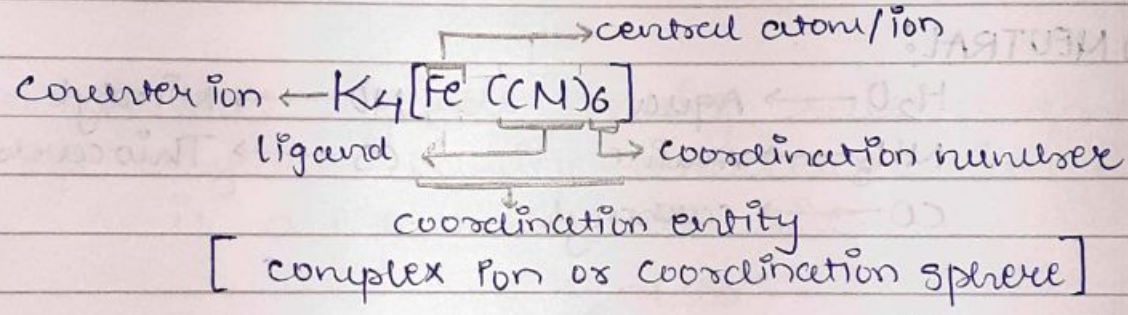 → central atom/ion
counter ion ← K4[Fe (CN)6]
ligand ← → coordination number
coordination entity
[ complex ion or coordination sphere ]